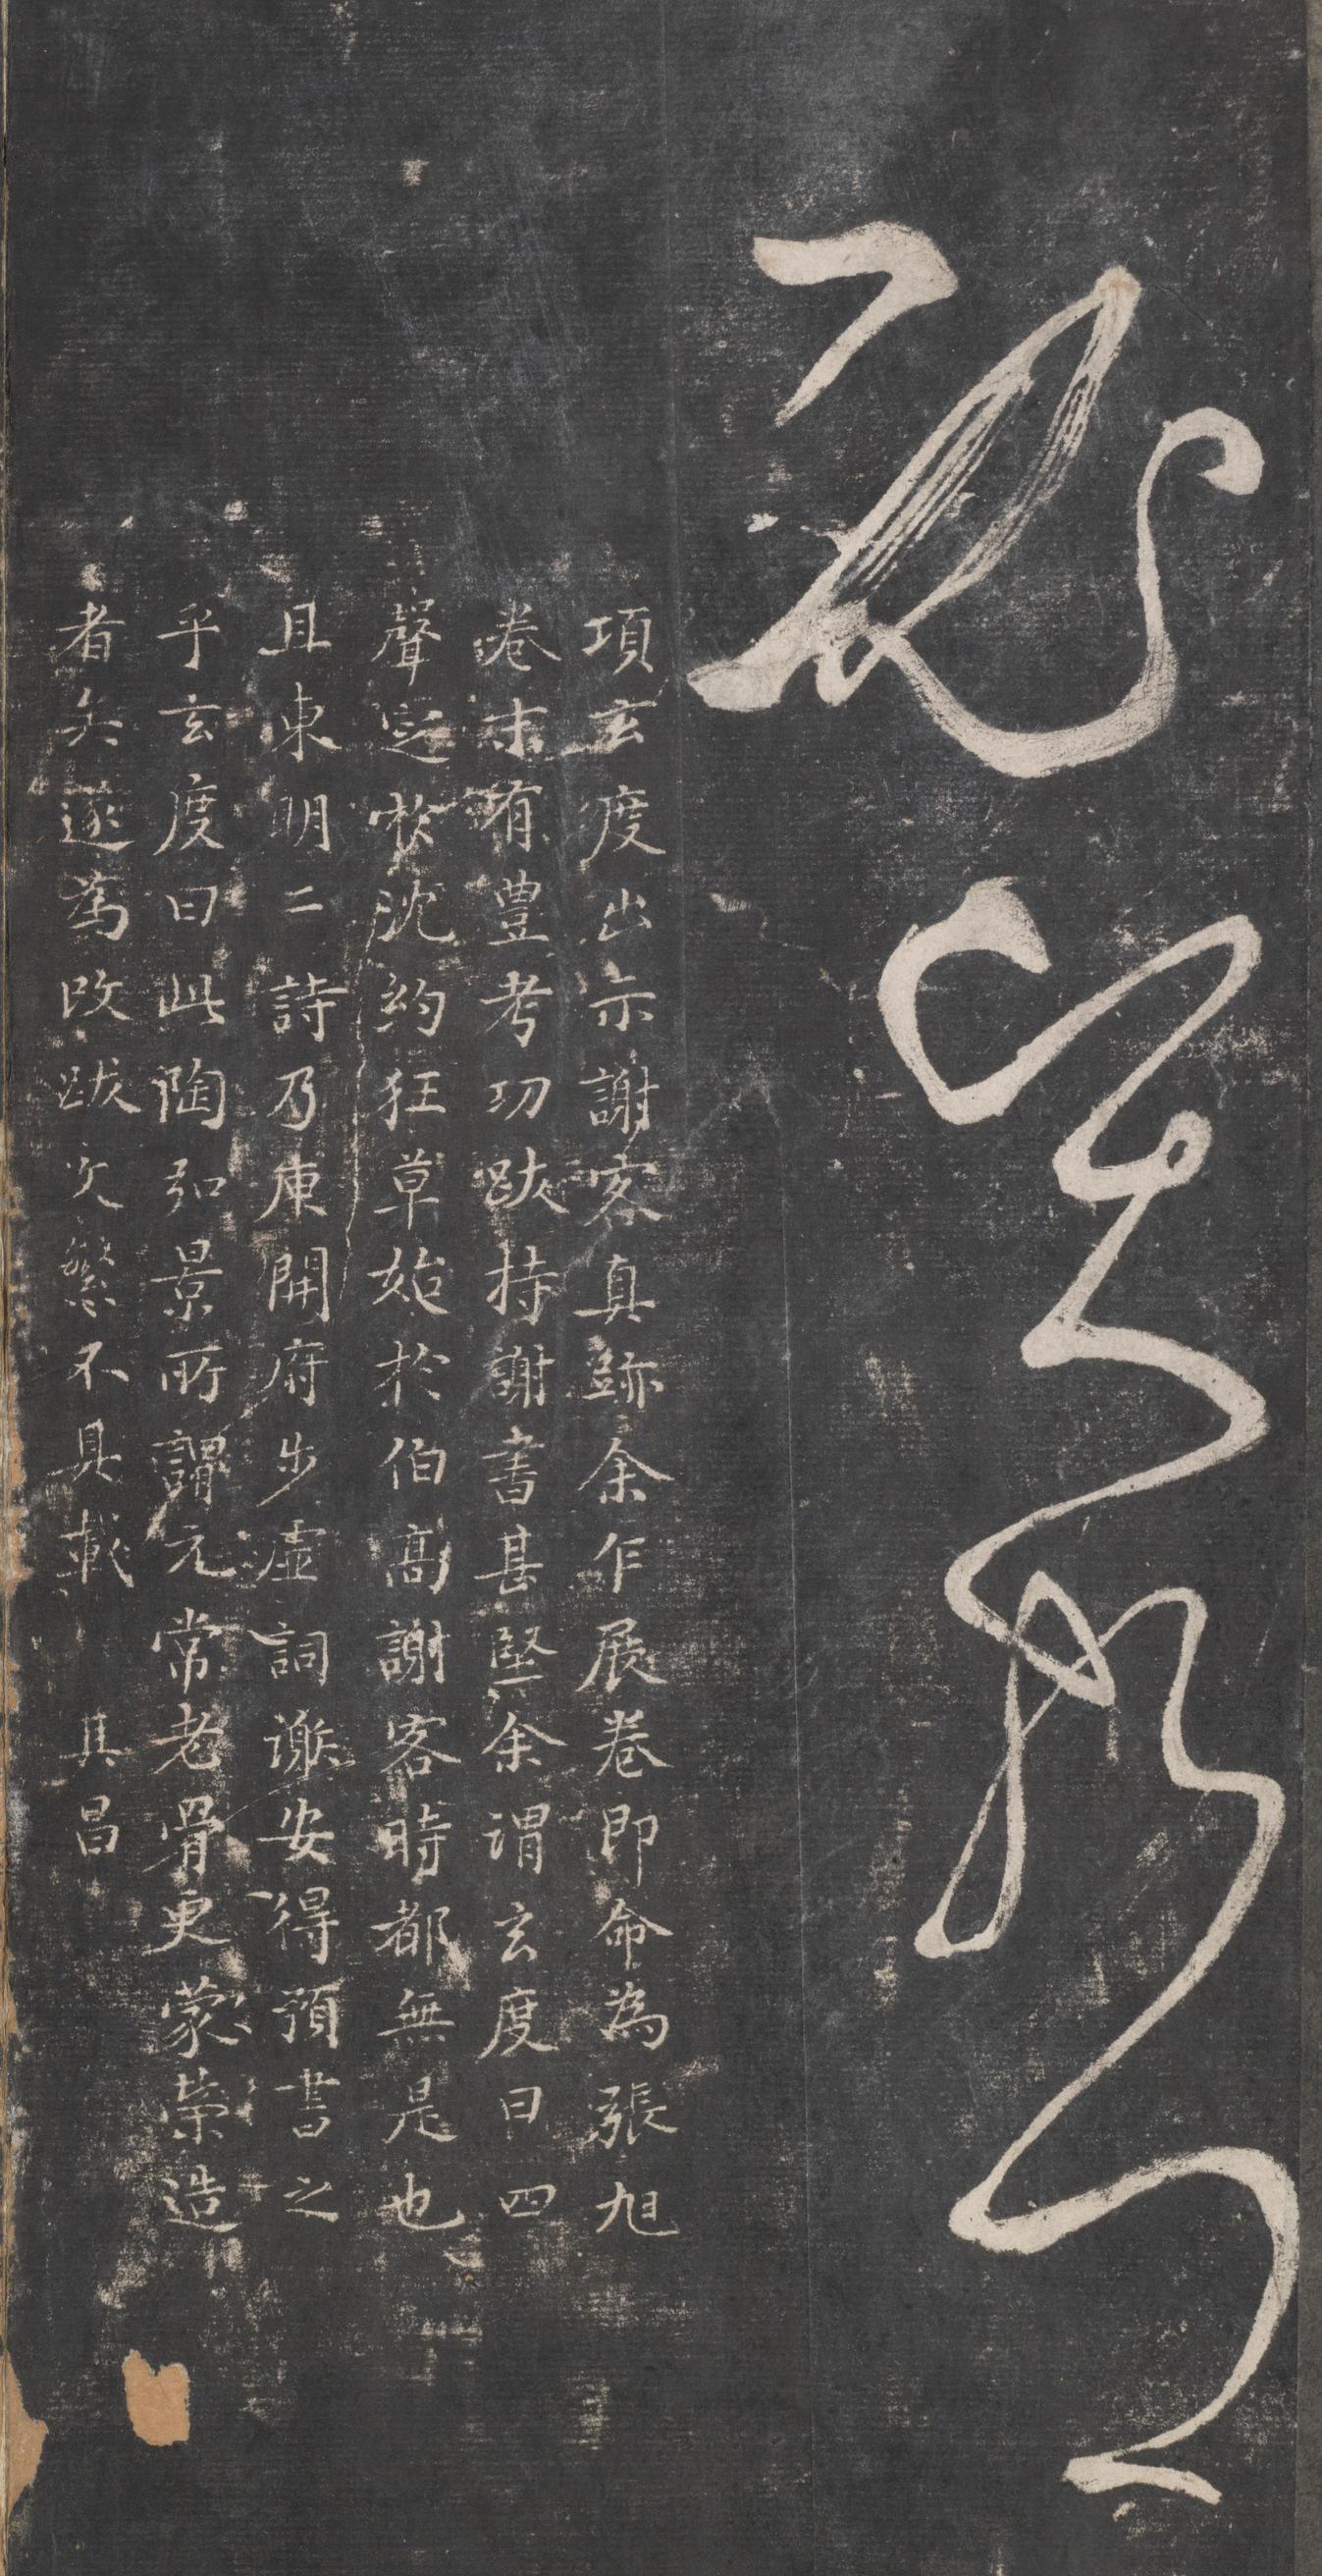 項玄度出示謝客真跡余乍展卷即命為張旭
卷末有豊考功跋持謝書甚堅余謂玄度曰四
聲定於沈約狂草始於伯高謝客時都無是也
且東明二詩乃庾開府步虛詞謝安得預書之
乎玄度曰此陶弘景所謂元常老骨更蒙榮造
者矣遂為改跋文繁不具載 其昌